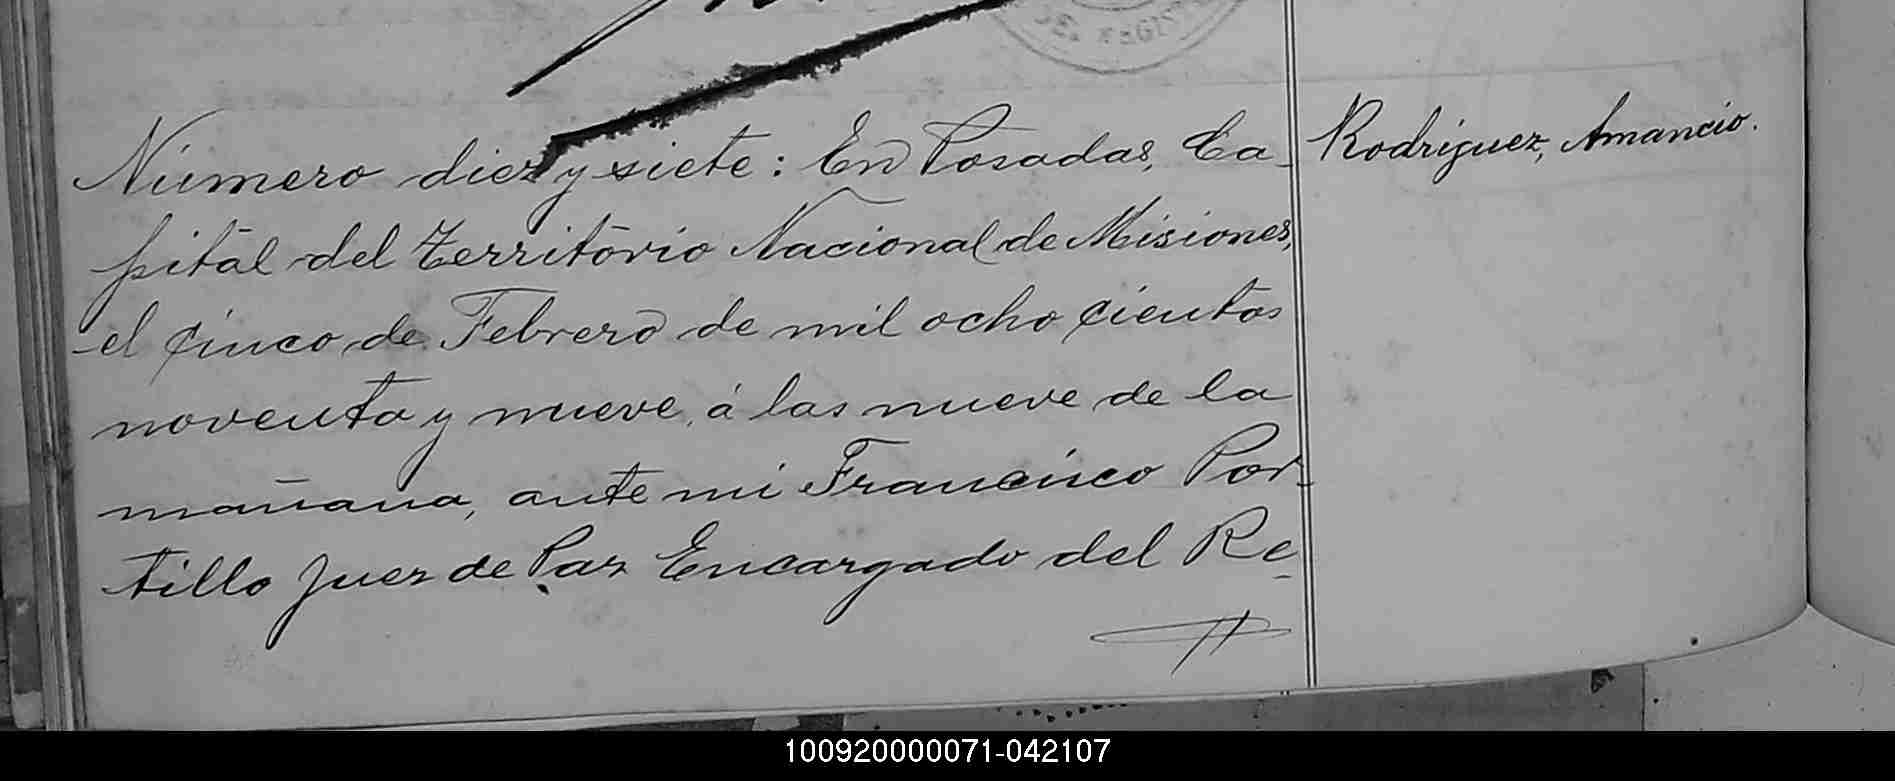 Número diez y siete: En Posadas, Ca-
pital del Territorio Nacional de Misiones,
el cinco de Febrero de mil ocho cientos
noventa y nueve, á las nueve de la
mañana, ante mi Francisco Por-
tillo Juez de Paz Encargado del Re-
Rodriguez, Amancio.
100920000071-042107